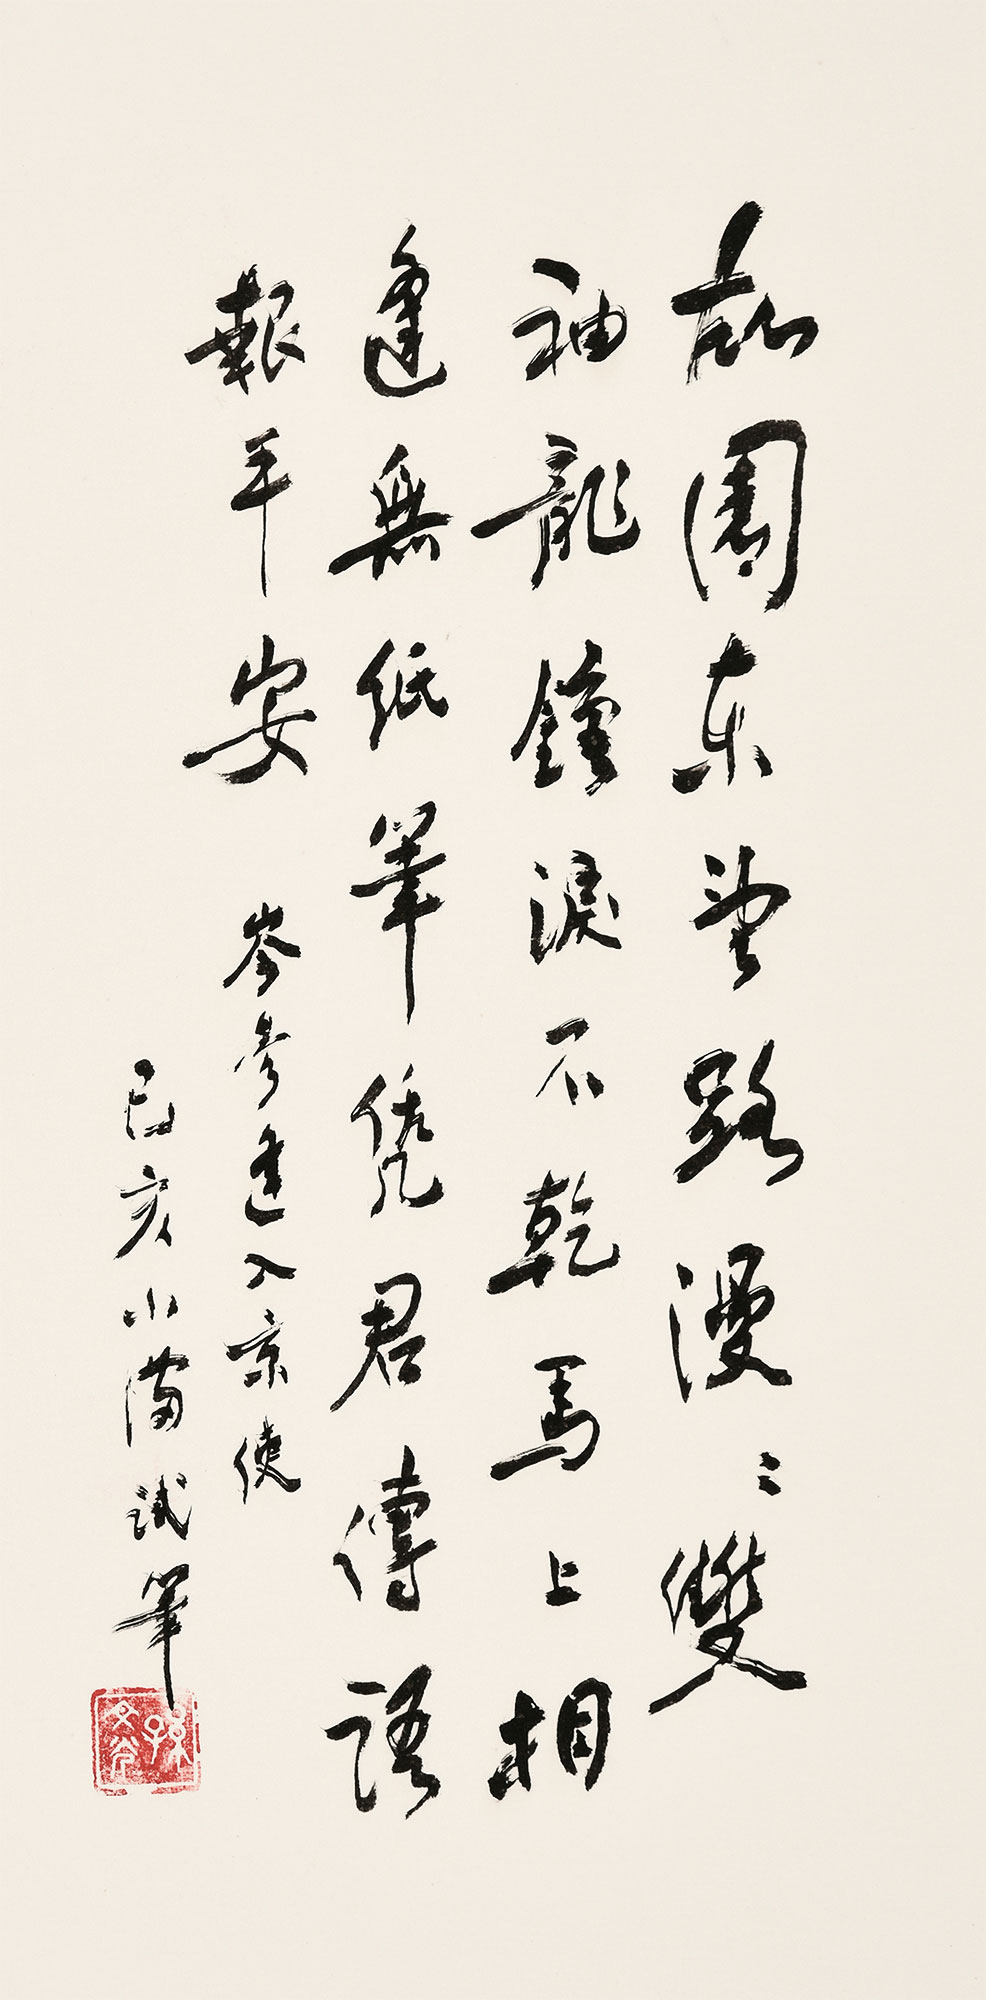 故園東望路漫〻雙
袖龍鍾淚不乾馬上相
逢無紙筆凭君傳語
報平安
岑參逢入京使
己亥小滿試筆
孫文光